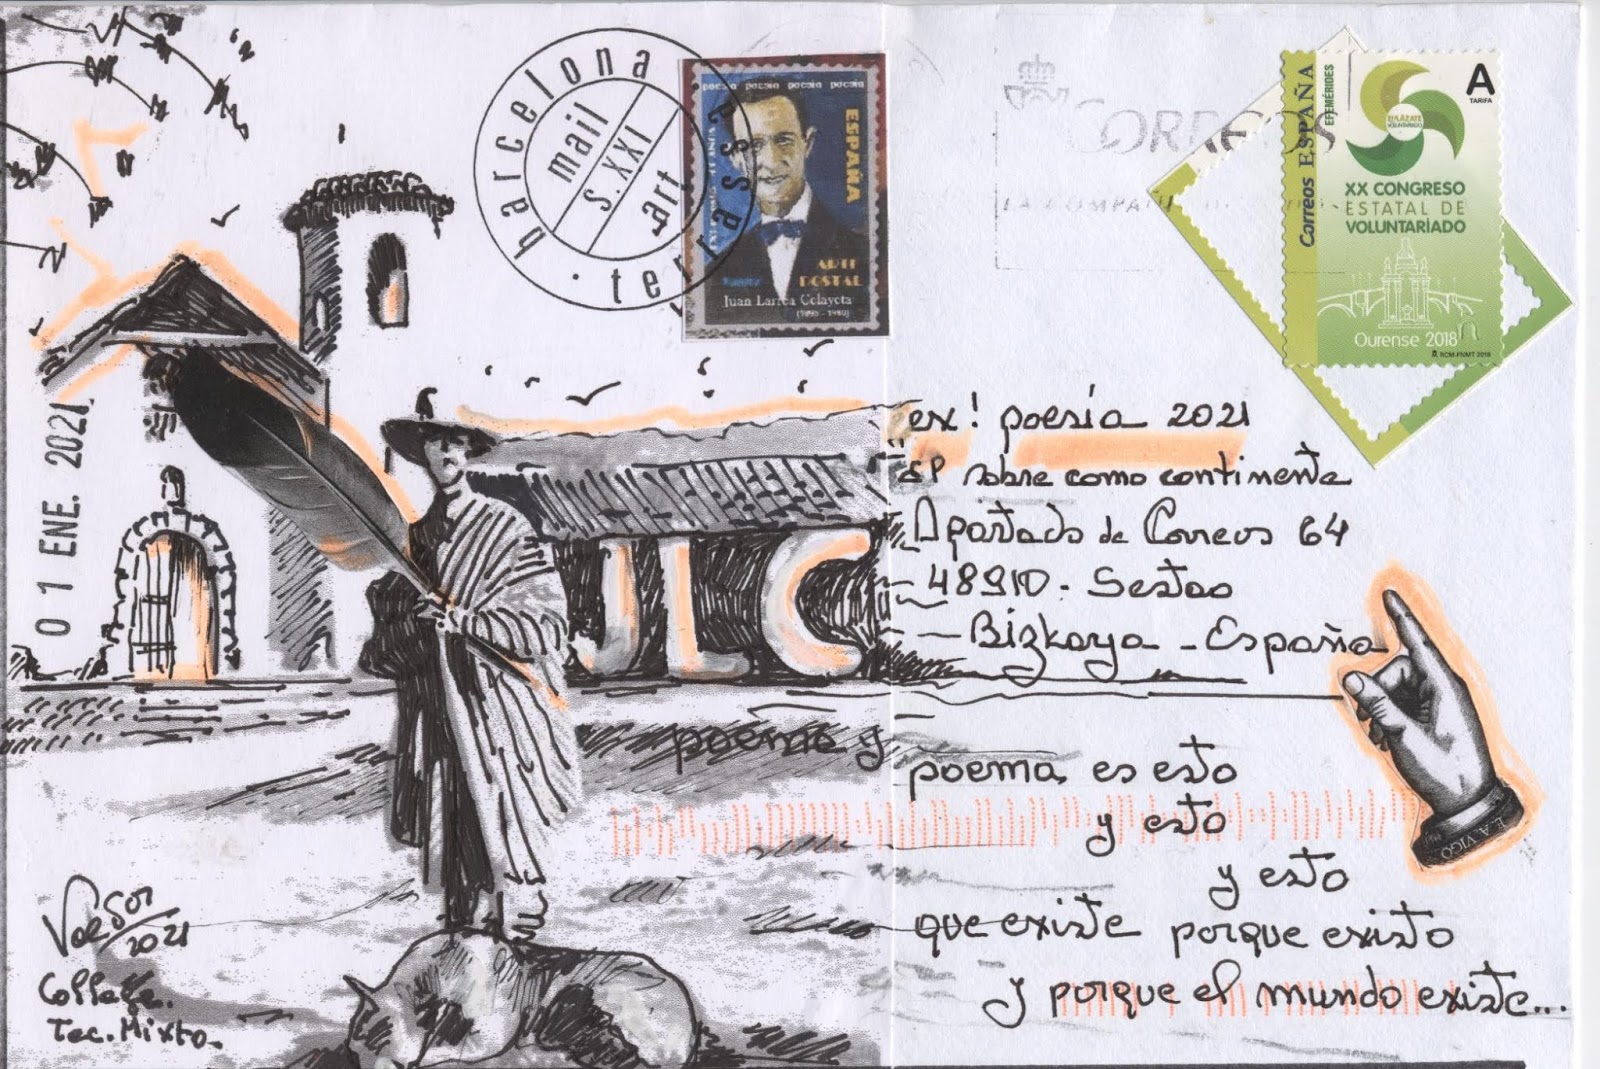 barcelona
terrassa
mail
S. XXI
art
poesía poesía poesía poesía
ESPAÑA
ARTE
POSTAL
Juan Larrea Celayeta
(1895 - 1980)
CORREOS
LA COMPAÑ
Correos ESPAÑA
EFEMÉRIDES
A
TARIFA
XX CONGRESO
ESTATAL DE
VOLUNTARIADO
Ourense 2018
RCM-FNMT 2018
0 1 ENE. 2021
ex! poesía 2021
EP sobre como continente
Apartado de Correos 64
48910 - Sestao
Bizkaya - España
JLC
poema y
poema es esto
y esto
y esto
que existe porque existo
y porque el mundo existe...
E.A. VIGO
2021
Collage.
Tec. Mixta.